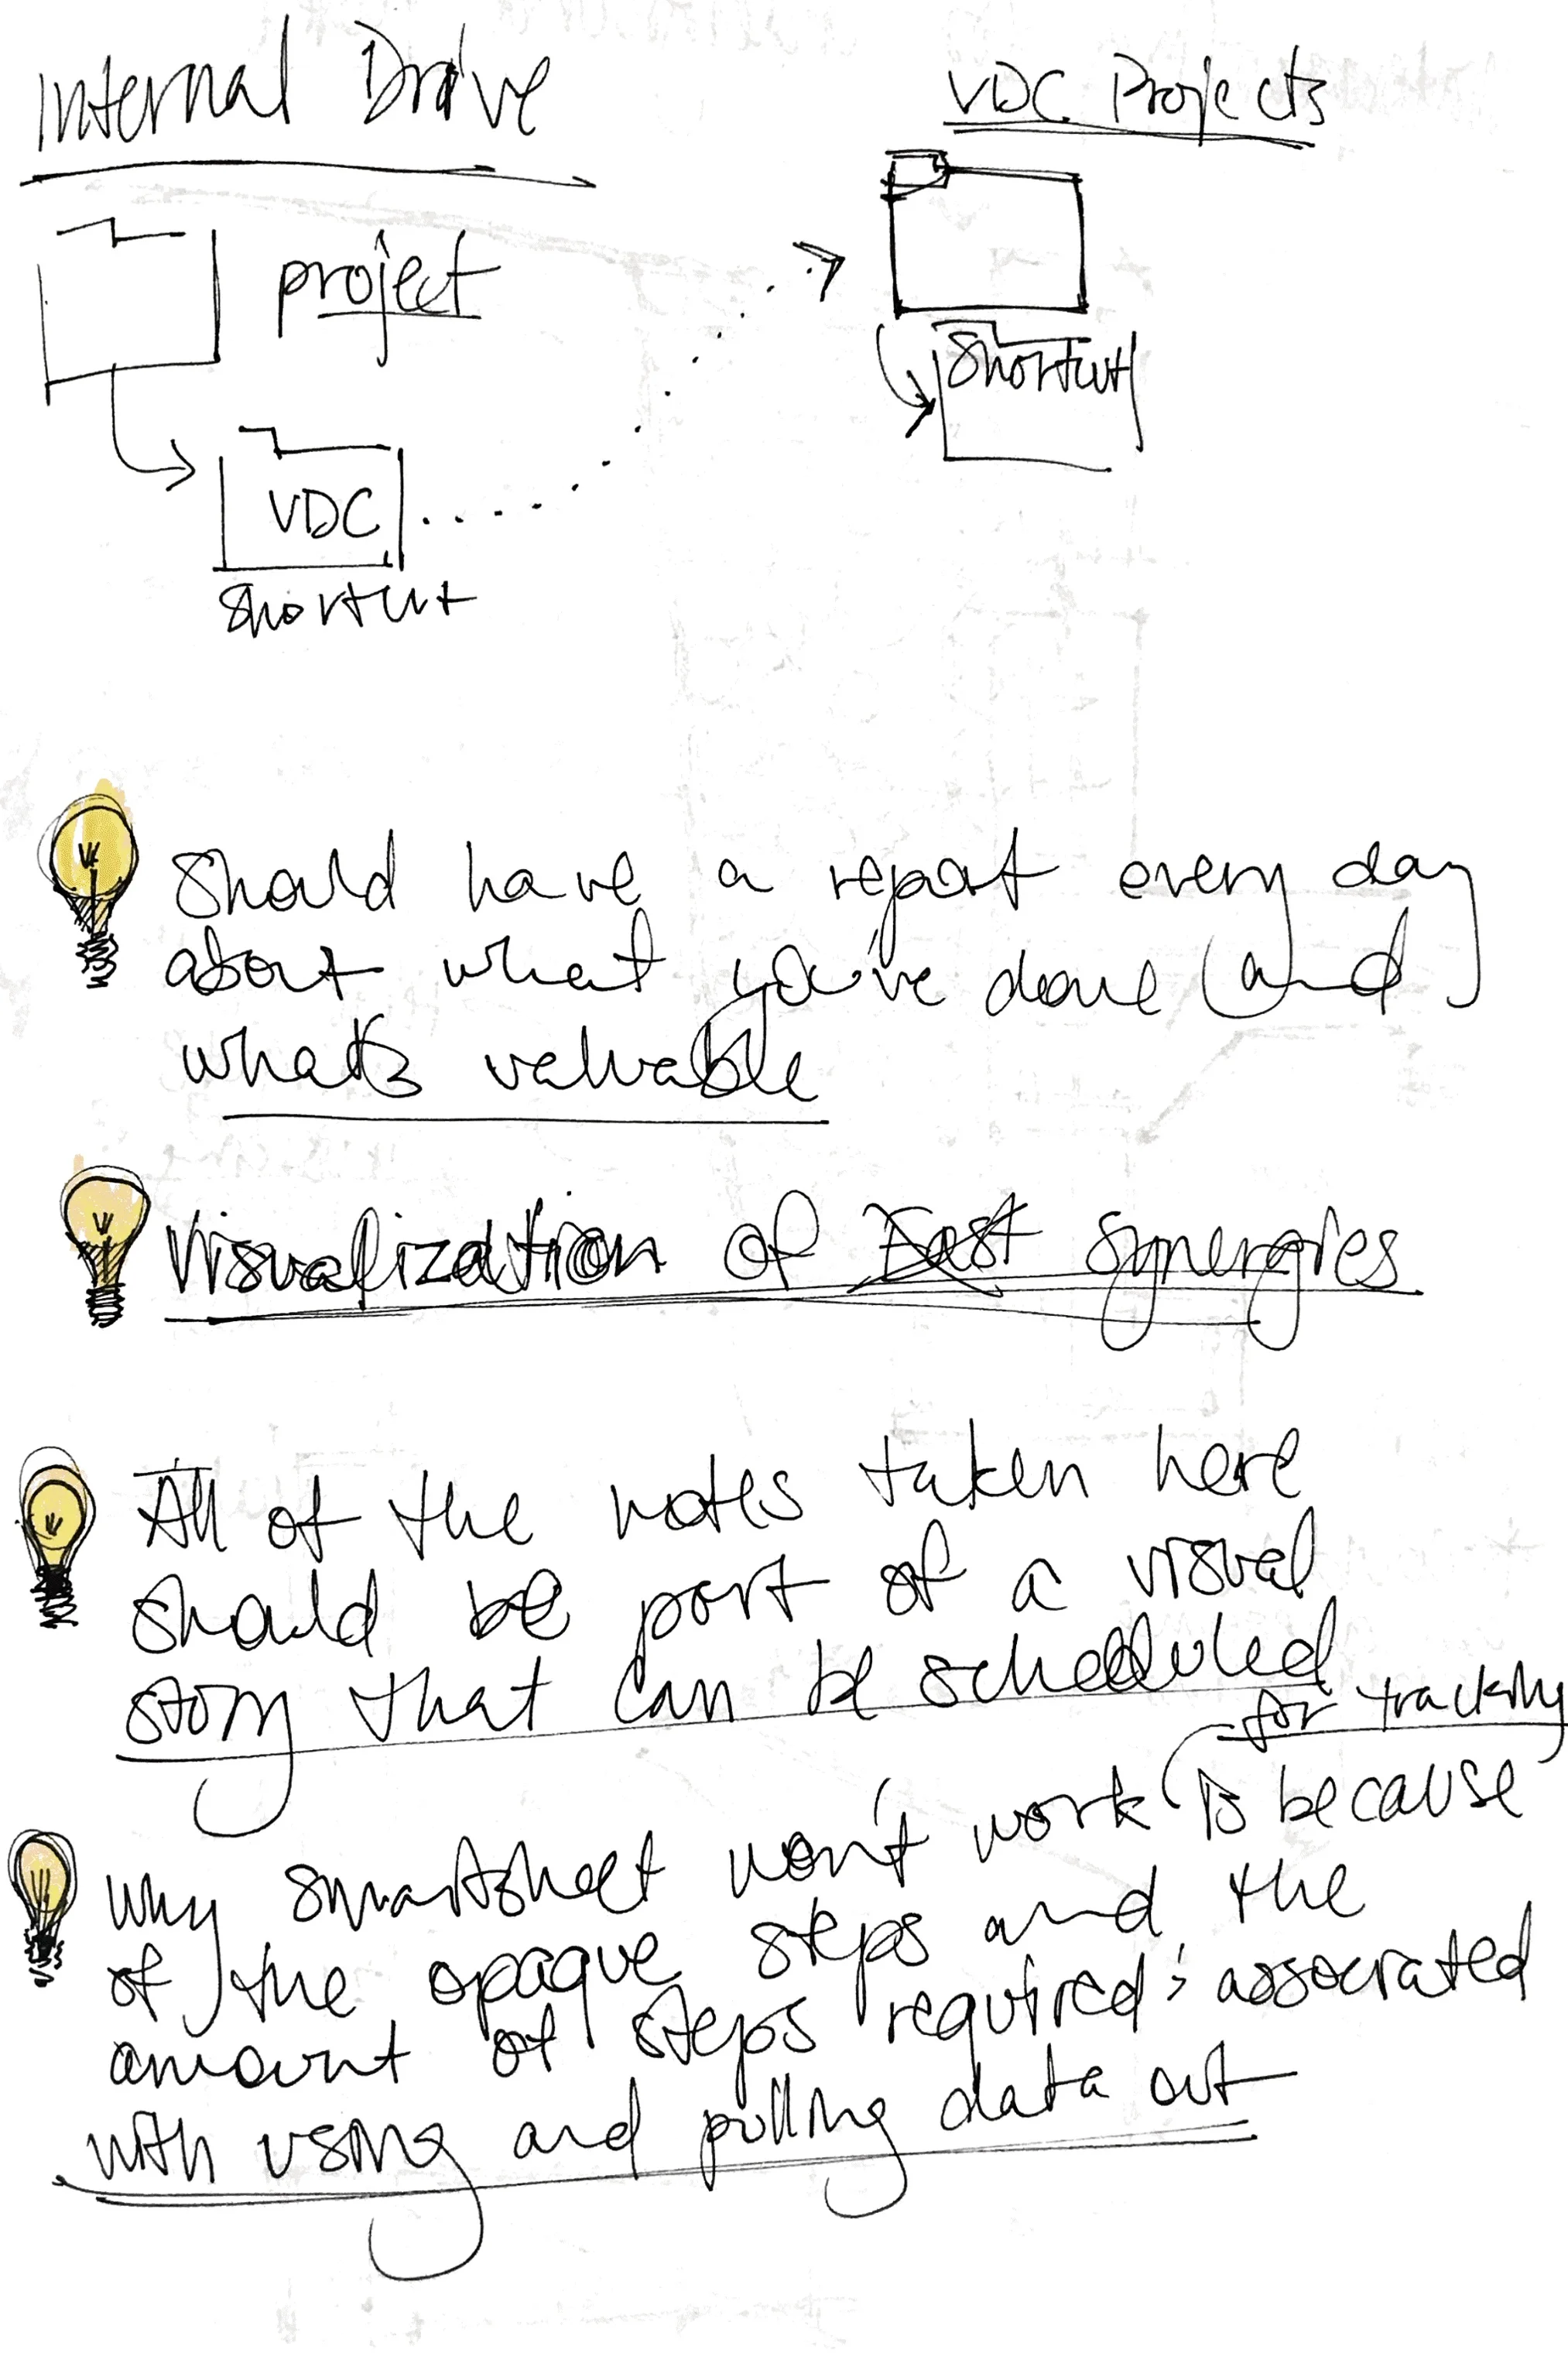 Internal Drive
VDC Projects
project
Shortcut
VDC
Shortcut
Should have a report every day
about what you've done (and)
what's valuable
Visualization of synergies
All of the notes taken here
should be part of a visual
story that can be scheduled
for tracking
Why smartsheet won't work is because
of the opaque steps and the
amount of steps required; associated
with using and pulling data out